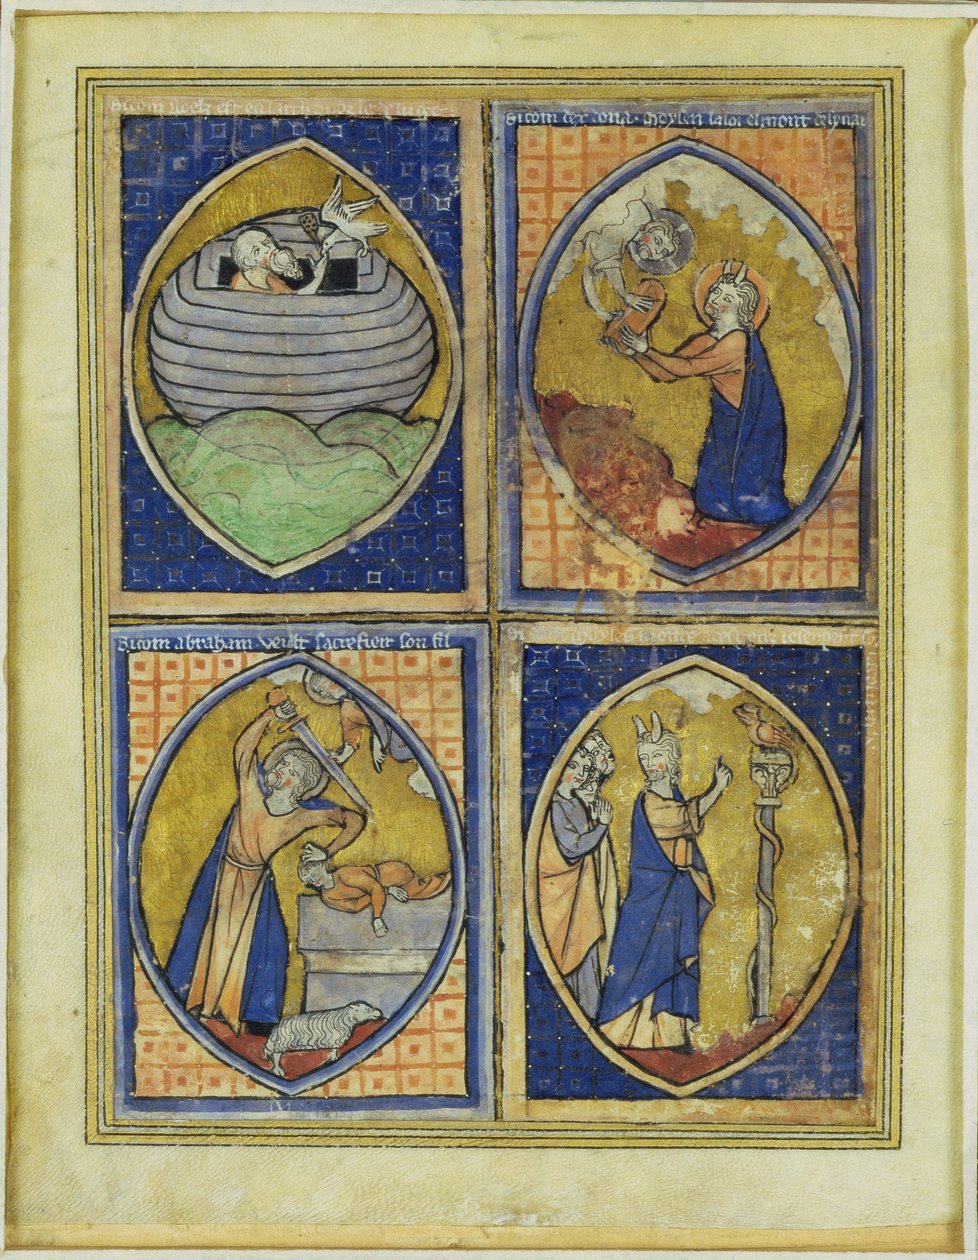 Si com Noeh est en larch
Si com dex dona moysen la loi el mont de synai
Si com abraham veult sacrefier son fil
moyses mostre le serpent